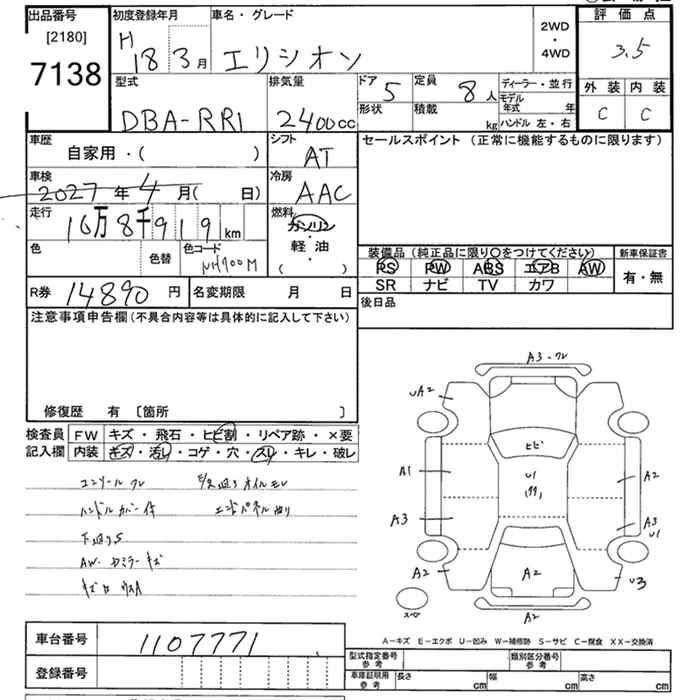 出品番号
[2180]
7138
初度登録年月
H 18 3月
車名・グレード
エリシオン
2WD
・
4WD
評価点
3.5
外装 内装
C C
型式
DBA-RR1
排気量
2400cc
ドア 5
形状
定員 8人
積載 kg
ディーラー・並行
モデル年式 年
ハンドル 左・右
車歴
自家用・( )
シフト
AT
セールスポイント (正常に機能するものに限ります)
車検
2027年4月( 日)
冷房
AAC
走行
16万8千919km
燃料
ガソリン
軽・油
( )
色
色替
色コード
NH700M
装備品 (純正品に限り○をつけてください)
PS PW ABS エアB AW
SR ナビ TV カワ
新車保証書
有・無
R券 14890円
名変期限 月 日
後日品
注意事項申告欄(不具合内容等は具体的に記入して下さい)
修復歴 有 [箇所 ]
検査員記入欄
FW キズ・飛石・ヒビ割・リペア跡・×要
内装 キズ・汚レ・コゲ・穴・スレ・キレ・破レ
コンソール クレ
ハンドルカバー付
下廻りS
AW. ドアミラーキズ
A3・クレ
UA2
ヒビ
A1
U1
A2
A3
A3
U1
A2
A2
U3
スペア
A2
A-キズ E-エクボ U-凹み W-補修跡 S-サビ C-腐食 XX-交換済
車台番号
1107771
登録番号
型式指定番号
参考
類別区分番号
参考
車庫証明用
参考
長さ cm
幅 cm
高さ cm